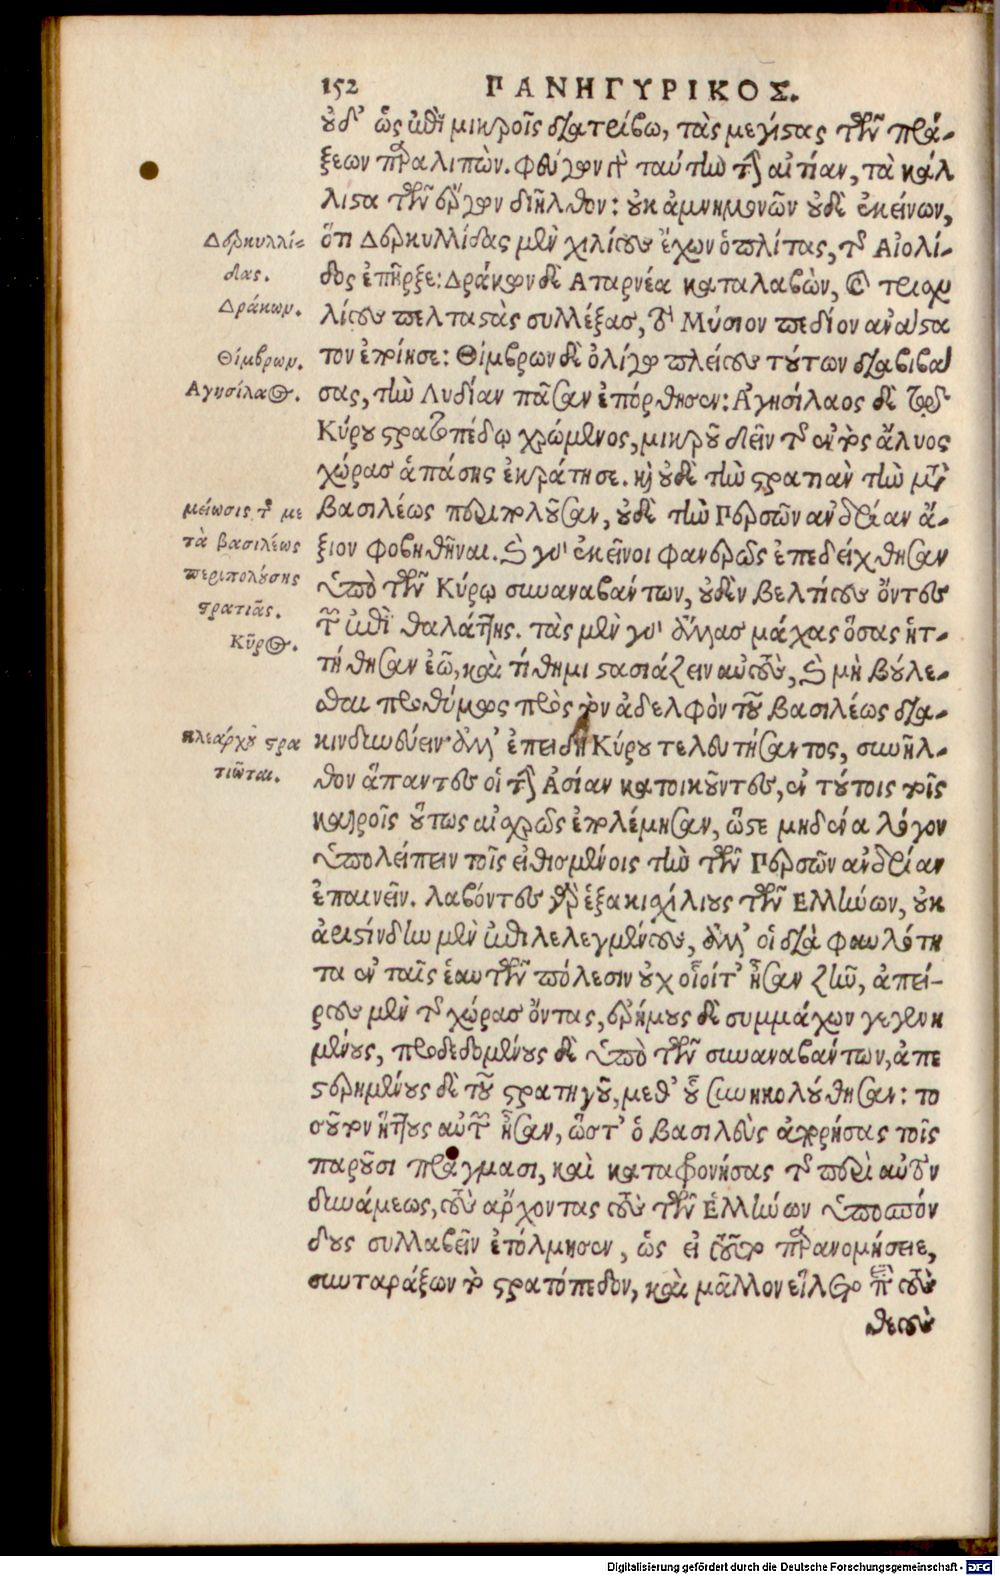 152 ΠΑΝΗΓΥΡΙΚΟΣ.
οὐδ' ὡς ἐπὶ μικροῖς διατρίβω, τὰς μεγίστας τῶν πρά-
ξεων παραλιπών. φθύγων δὲ ταύτην τὴν αἰτίαν, τὰ κάλ
λιστα τῶν ἔργων διῆλθον: οὐκ ἀμνημονῶν οὐδὲ ἐκείνων,
ὅτι Δερκυλλίδας μὲν χιλίους ἔχων ὁπλίτας, τῆς Αἰολί-
δος ἐπῆρξε: Δράκων δὲ Αταρνέα καταλαβὼν, καὶ τρισχι
λίους πελταστὰς συλλέξας, τὸ Μύσιον πεδίον ἀνάστα
τον ἐποίησε: Θίμβρων δὲ ὀλίγῳ πλείους τούτων διαβιβα
σας, τὴν Λυδίαν πᾶσαν ἐπόρθησεν: Ἀγησίλαος δὲ τῷ
Κύρου στρατοπέδῳ χρώμενος, μικροῦ δεῖν τῆς ἐντὸς ἅλυος
χώρας ἁπάσης ἐκράτησε. καὶ οὐδὲ τὴν στρατιὰν τὴν μετὰ
βασιλέως περιπολοῦσαν, οὐδὲ τὴν Περσῶν ἀνδρίαν ἄ-
ξιον φοβηθῆναι. καὶ γὰρ ἐκεῖνοι φανερῶς ἐπεδείχθησαν
ὑπὸ τῶν Κύρῳ συναναβάντων, οὐδὲν βελτίους ὄντες
τῶν ἐπὶ θαλάττης. τὰς μὲν γὰρ ἄλλας μάχας ὅσας ἡτ-
τήθησαν ἐῶ, καὶ τίθημι στασιάζειν αὐτοὺς, καὶ μὴ βούλε-
σθαι προθύμως πρὸς τὸν ἀδελφὸν τοῦ βασιλέως δια-
κινδυνεύειν· ἀλλ' ἐπειδὴ Κύρου τελευτήσαντος, συνῆλ-
θον ἅπαντες οἱ τὴν Ἀσίαν κατοικοῦντες, ἐν τούτοις τοῖς
καιροῖς οὕτως αἰσχρῶς ἐπολέμησαν, ὥστε μηδένα λόγον
ὑπολείπειν τοῖς εἰθισμένοις τὴν τῶν Περσῶν ἀνδρίαν
ἐπαινεῖν. λαβόντες γὰρ ἑξακισχιλίους τῶν Ελλήνων, οὐκ
ἀριστίνδην μὲν ἐπιλελεγμένους, ἀλλ' οἳ διὰ φαυλότη
τα ἐν ταῖς ἑαυτῶν πόλεσιν οὐχ οἷοίτ' ἦσαν ζῆν, ἀπεί-
ρους μὲν τῆς χώρας ὄντας, ἐρήμους δὲ συμμάχων γεγενη
μένους, προδεδομένους δὲ ὑπὸ τῶν συναναβάντων, ἀπε
στερημένους δὲ τοῦ στρατηγοῦ, μεθ' οὗ συνηκολούθησαν: το
σοῦτον ἥττους αὐτῶν ἦσαν, ὥστ' ὁ βασιλεὺς ἀπορήσας τοῖς
παροῦσι πράγμασι, καὶ καταφρονήσας τῆς περὶ αὐτὸν
δυνάμεως, τοὺς ἄρχοντας τοὺς τῶν Ἑλλήνων ὑποσπόν
δους συλλαβεῖν ἐτόλμησεν, ὡς εἰ τοῦτο παρανομήσειε,
συνταράξων τὸ στρατόπεδον, καὶ μᾶλλον εἵλετο περὶ τοὺς
θεοὺς
Δερκυλλί-
δας.
Δράκων.
Θίμβρων.
Αγησίλαος.
μείωσις τῆς με
τὰ βασιλέως
περιπολούσης
στρατιᾶς.
Κῦρος.
κλεάρχου στρα
τιῶται.
Digitalisierung gefördert durch die Deutsche Forschungsgemeinschaft - DFG